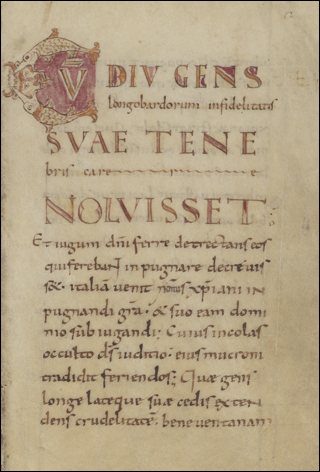 QVVDIV GENS
longobardorum infidelitatis
SVAE TENE
bris care e
NOLVISSET:
Et iugum dñi ferre detrectans eos
qui ferebant inpugnare decreuis
italiã uenit nomẽ xp̃iani in
pugnandi gr̃a & suo eam domi
nio sub iugandi; Cuius incolas
occulto dĩ iuditio eius mucroni
tradidit feriendos; Quae gens
longe lateque suae cedis exten
dens crudelitatẽ, beneuentanam